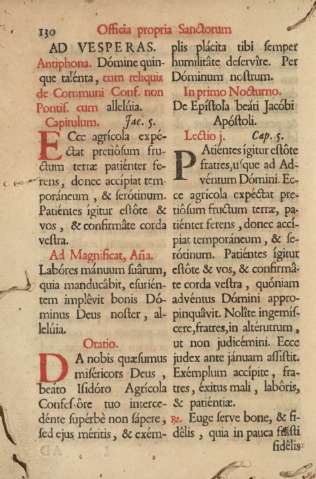 130 Officia propria Sanctorum
AD VESPERAS.
Antiphona. Dómine quin-
que talénta, cum reliquis
de Communi Conf. non
Pontif. cum allelúia.
Capitulum. Jac. 5.
ECce agrícola expé-
ctat pretiósum fru-
ctum terræ patiénter fe-
rens, donec accipiat tem-
poráneum, & serótinum.
Patiéntes igitur estóte &
vos, & confirmáte corda
vestra.
Ad Magnificat, Aña.
Labóres mánuum suârum,
quia manducâbit, esurién-
tem implêvit bonis Dó-
minus Deus noster, al-
lelúia.
Oratio.
DA nobis quæsumus
miséricors Deus,
beáto Isidóro Agrícola
Confessôre tuo interce-
dénte supérbè non sápere,
sed ejus méritis, & exém-
plis plácita tibi semper
humilitâte deservîre. Per
Dóminum nostrum.
In primo Nocturno.
De Epístola beáti Jacóbi
Apóstoli.
Lectio j. Cap. 5.
PAtiéntes igitur estôte
fratres, usque ad Ad-
véntum Dómini. Ec-
ce agricola expéctat pre-
tiósum fructum terræ, pa-
tiénter ferens, donec accí-
piat temporáneum, & se-
rótinum. Patiéntes igitur
estôte & vos, & confirmâ-
te corda vestra, quóniam
advéntus Dómini appro-
pinquâvit. Nolîte ingemis-
cere, fratres, in altérutrum,
ut non judicémini. Ecce
judex ante jánuam assistit.
Exémplum accípite, fra-
tres, éxitus mali, labôris,
& patiéntiæ.
℞. Euge serve bone, & fi-
délis, quia in pauca fuisti
fidêlis